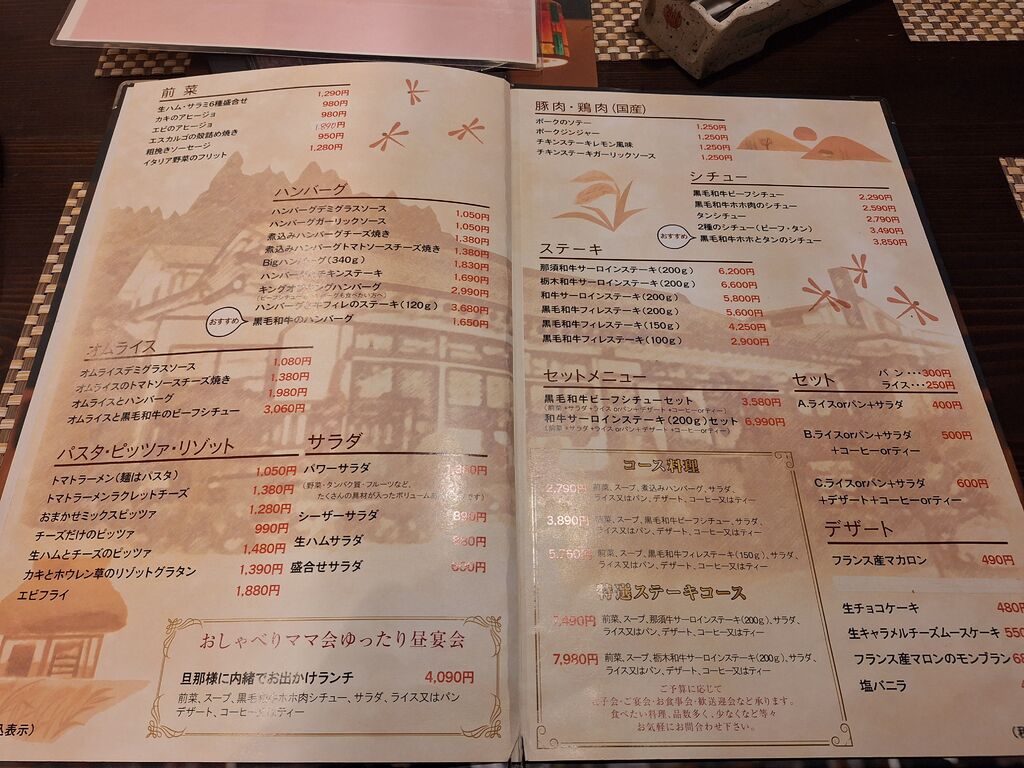 前菜
生ハム・サラミ6種盛合せ 1,290円
カキのアヒージョ 980円
エビのアヒージョ 980円
エスカルゴの殻詰め焼き
粗挽きソーセージ 950円
イタリア野菜のフリット 1,280円
ハンバーグ
ハンバーグデミグラスソース 1,050円
ハンバーグガーリックソース 1,050円
煮込みハンバーグチーズ焼き 1,380円
煮込みハンバーグトマトソースチーズ焼き 1,380円
Bigハンバーグ(340g) 1,830円
ハンバーグとチキンステーキ 1,690円
ハンバーグ 2,990円
ハンバーグと牛フィレのステーキ(120g) 3,680円
おすすめ 黒毛和牛のハンバーグ 1,650円
オムライス
オムライスデミグラスソース 1,080円
オムライスのトマトソースチーズ焼き 1,380円
オムライスとハンバーグ 1,980円
オムライスと黒毛和牛のビーフシチュー 3,060円
パスタ・ピッツァ・リゾット
トマトラーメン(麺はパスタ) 1,050円
トマトラーメンラクレットチーズ 1,380円
おまかせミックスピッツァ 1,280円
チーズだけのピッツァ 990円
生ハムとチーズのピッツァ 1,480円
カキとホウレン草のリゾットグラタン 1,390円
エビフライ 1,880円
サラダ
パワーサラダ
(野菜・タンパク質・フルーツなど、
たくさんの具材が入ったボリューム
シーザーサラダ
生ハムサラダ
盛合せサラダ
おしゃべりママ会ゆったり昼宴会
旦那様に内緒でお出かけランチ 4,090円
前菜、スープ、黒毛和牛ホホ肉シチュー、サラダ、ライス又はパン
デザート、コーヒー又はティー
込表示)
豚肉・鶏肉(国産)
ポークのソテー 1,250円
ポークジンジャー 1,250円
チキンステーキレモン風味 1,250円
チキンステーキガーリックソース 1,250円
シチュー
黒毛和牛ビーフシチュー 2,290円
黒毛和牛ホホ肉のシチュー 2,590円
タンシチュー 2,790円
2種のシチュー(ビーフ・タン) 3,490円
おすすめ 黒毛和牛ホホとタンのシチュー 3,850円
ステーキ
那須和牛サーロインステーキ(200g) 6,200円
栃木和牛サーロインステーキ(200g) 6,600円
和牛サーロインステーキ(200g) 5,800円
黒毛和牛フィレステーキ(200g) 5,600円
黒毛和牛フィレステーキ(150g) 4,250円
黒毛和牛フィレステーキ(100g) 2,900円
セットメニュー
黒毛和牛ビーフシチューセット 3,580円
(前菜+サラダ+ライスorパン+デザート+コーヒーorティー)
和牛サーロインステーキ(200g)セット 6,990円
(前菜+サラダ+ライスorパン+デザート+コーヒーorティー)
セット
パン・・・300円
ライス・・・250円
A.ライスorパン+サラダ 400円
B.ライスorパン+サラダ 500円
+コーヒーorティー
C.ライスorパン+サラダ 600円
+デザート+コーヒーorティー
コース料理
2,790円 前菜、スープ、煮込みハンバーグ、サラダ、
ライス又はパン、デザート、コーヒー又はティー
3,890円 前菜、スープ、黒毛和牛ビーフシチュー、サラダ、
ライス又はパン、デザート、コーヒー又はティー
前菜、スープ、黒毛和牛フィレステーキ(150g)、サラダ、
ライス又はパン、デザート、コーヒー又はティー
特選ステーキコース
7,490円 前菜、スープ、那須和牛サーロインステーキ(200g)、サラダ、
ライス又はパン、デザート、コーヒー又はティー
7,980円 前菜、スープ、栃木和牛サーロインステーキ(200g)、サラダ、
ライス又はパン、デザート、コーヒー又はティー
ご予算に応じて
女子会・ご宴会・お食事会・歓送迎会など承ります。
食べたい料理、品数多く、少なくなど等々
お気軽にお問合わせ下さい。
デザート
フランス産マカロン 490円
生チョコケーキ 480円
生キャラメルチーズムースケーキ 550
フランス産マロンのモンブラン
塩バニラ